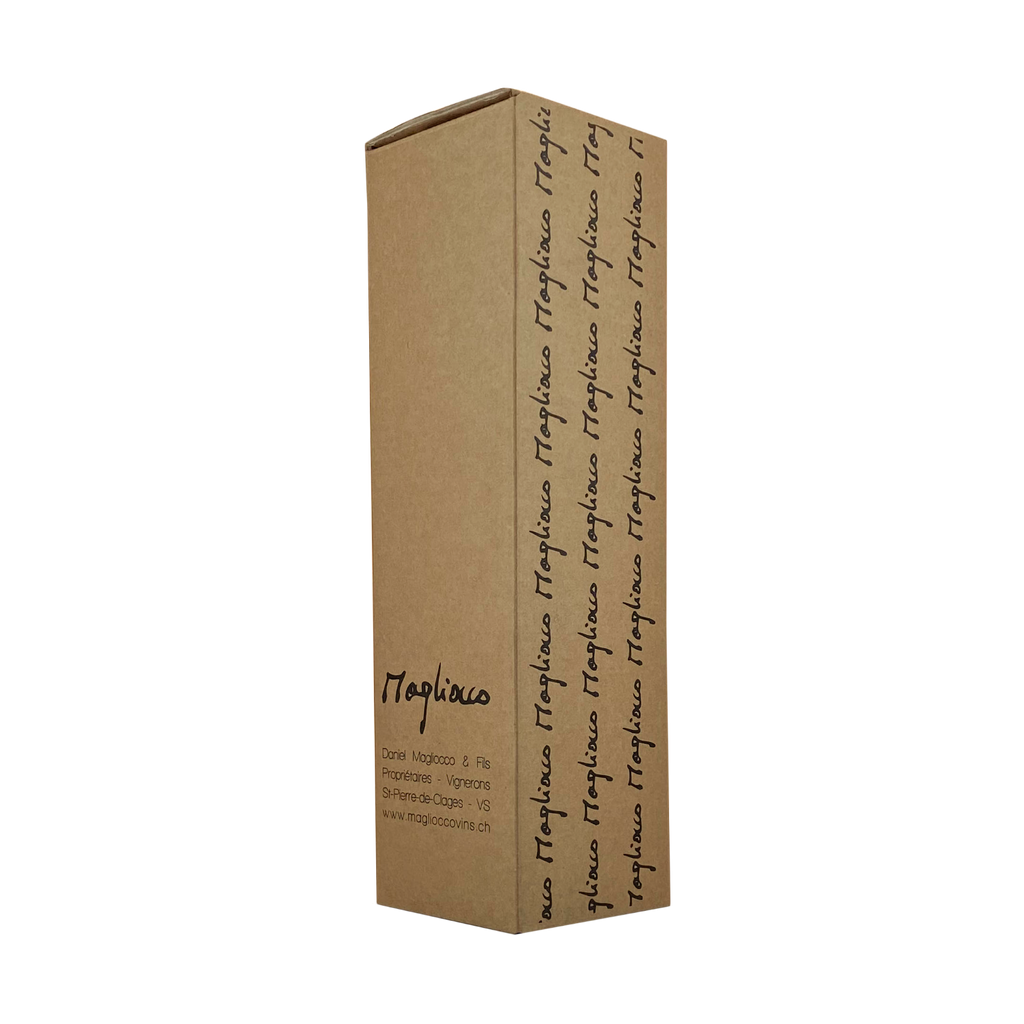 Magliocco
Daniel Magliocco & Fils
Propriétaires - Vignerons
St-Pierre-de-Clages - VS
www.maglioccovins.ch
iocco Magliocco Magliocco Magliocco Magliocco Magliocco Maglio
gliocco Magliocco Magliocco Magliocco Magliocco Magliocco Mag
Magliocco Magliocco Magliocco Magliocco Magliocco Magliocco M